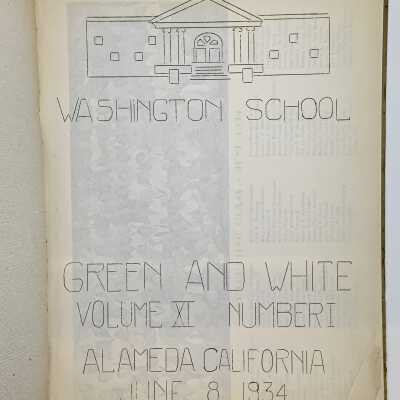 WASHINGTON SCHOOL
GREEN AND WHITE
VOLUME XI NUMBER I
ALAMEDA CALIFORNIA
JUNE 8 1934